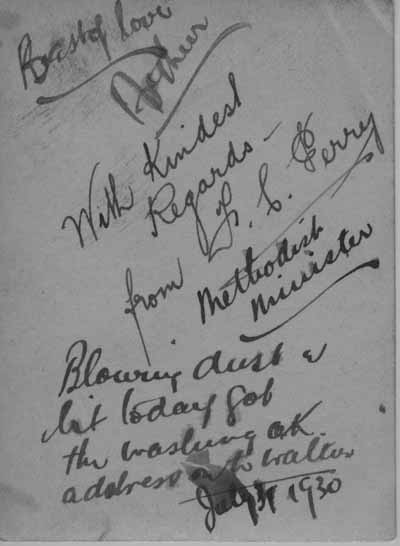 Best of love
Arthur
With Kindest
Regards -
from F. C. Perry
Methodist
Minister
Blowing dust a
bit today got
the washing ok.
address to Walter
July 31 1930